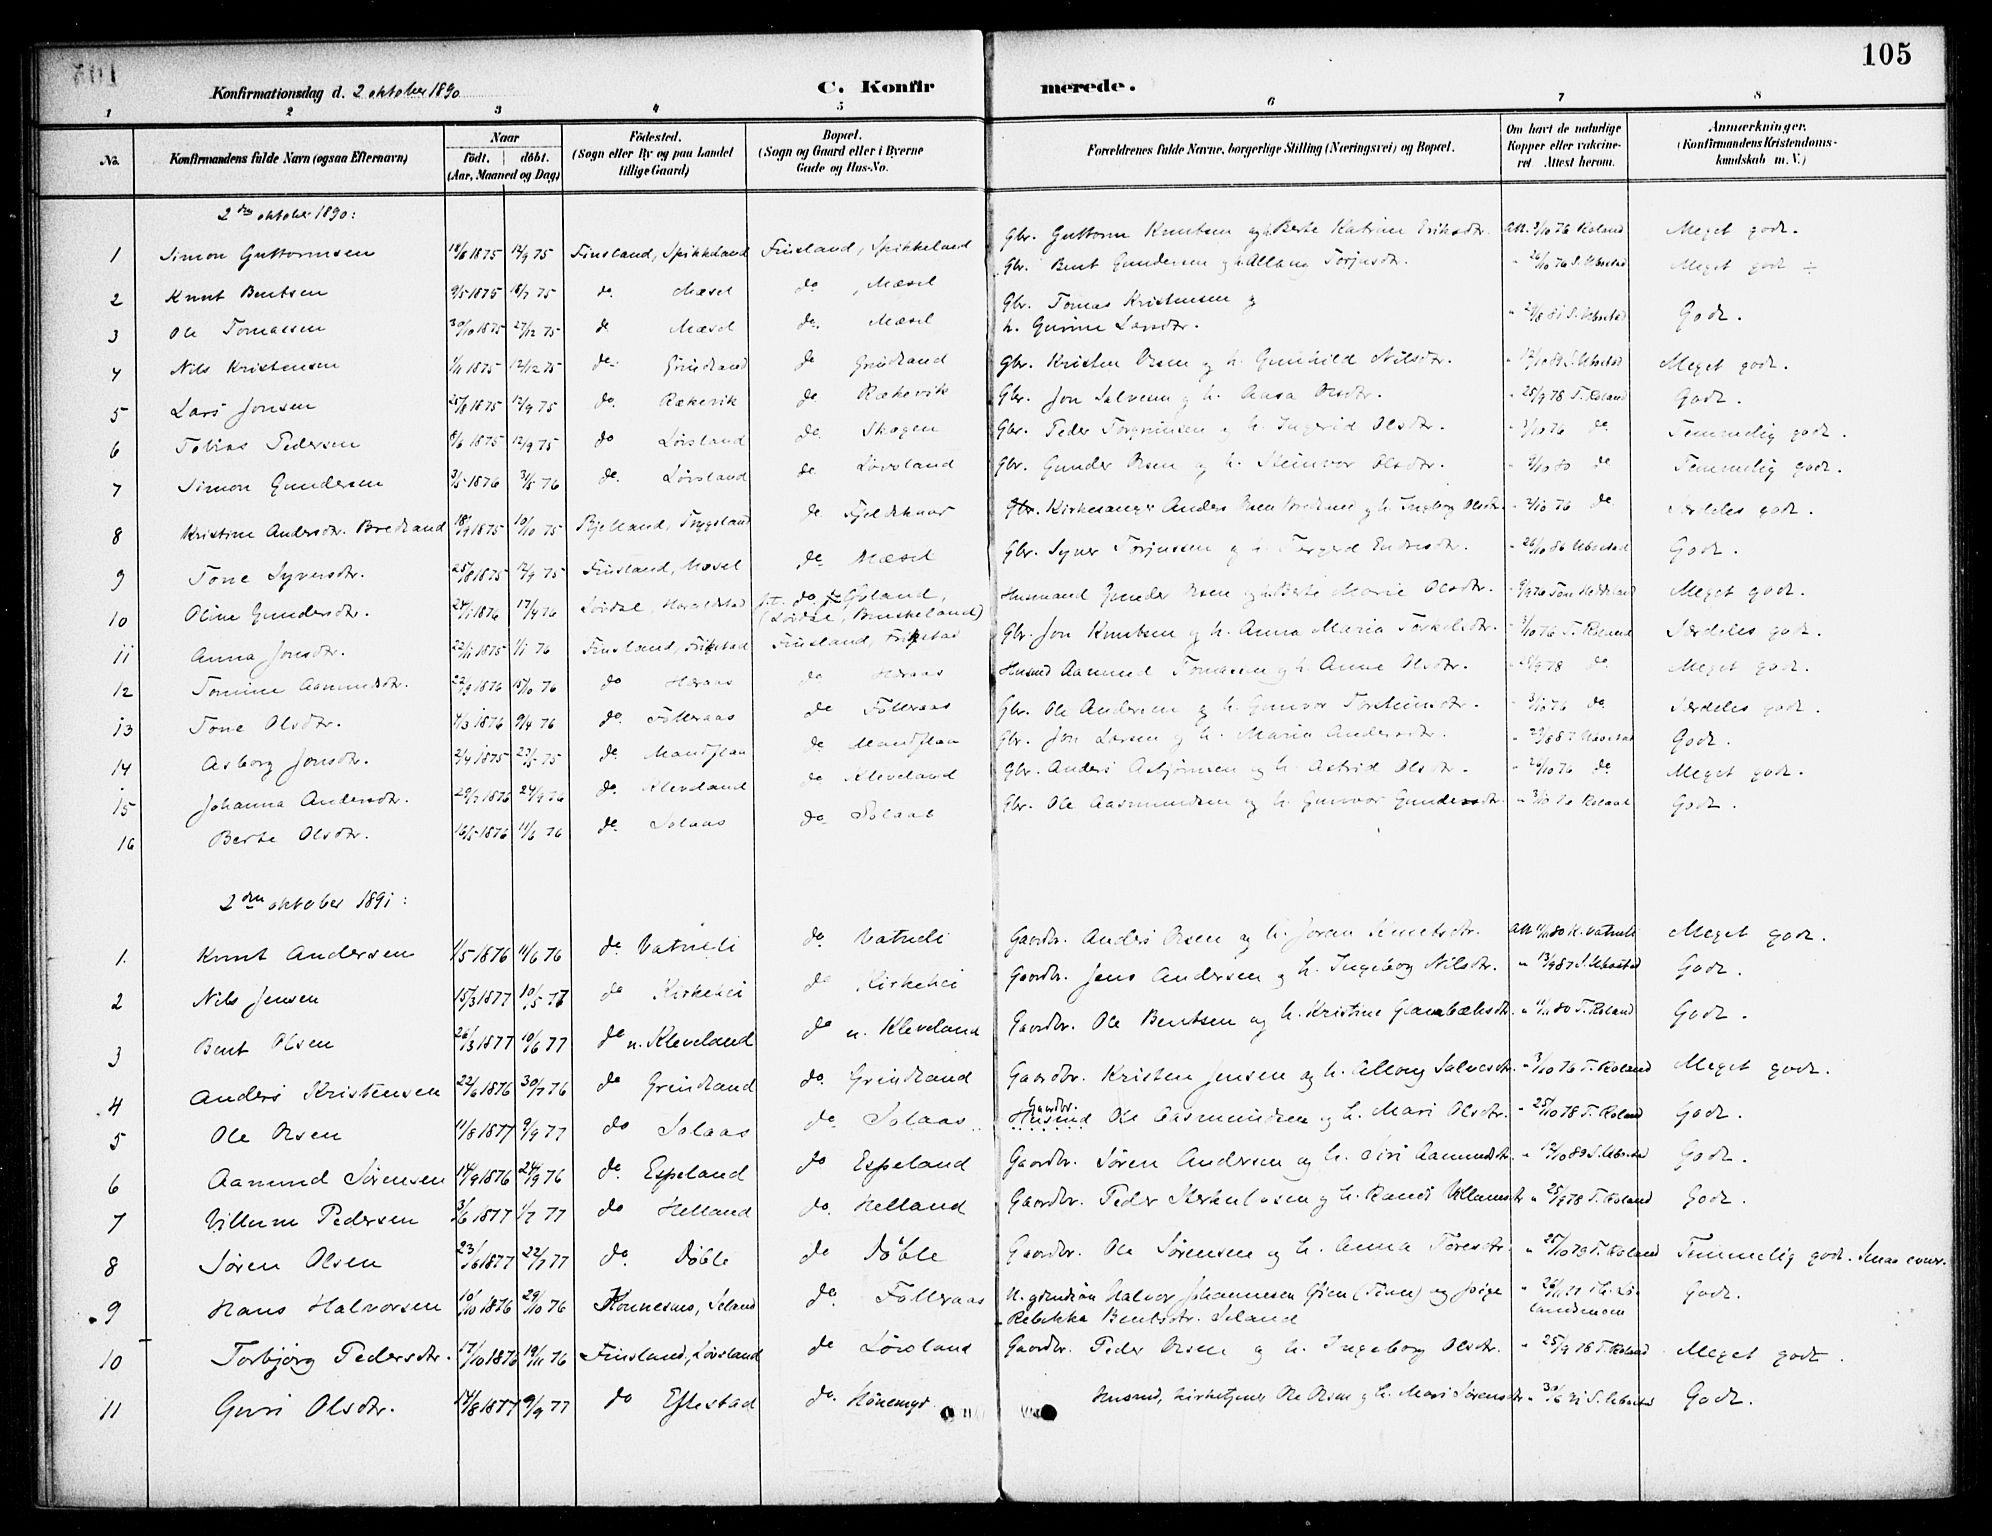 105
Konfirmationsdag d. 2 oktober 1890
C. Konfirmerede.
1 2 3 4 5 6 7 8
No. | Konfirmandens fulde Navn (ogsaa Efternavn) | Naar født. døbt. (Aar, Maaned og Dag) | Fødested. (Sogn eller By og paa Landet tillige Gaard) | Bopæl. (Sogn og Gaard eller i Byerne Gade og Hus-No. | Forældrenes fulde Navne, borgerlige Stilling (Næringsvei) og Bopæl. | Om havt de naturlige Kopper eller vakcineret. Attest herom. | Anmærkninger. (Konfirmandens Kristendomskundskab m. V.)
2den oktober 1890:
1 Simon Guttormsen 18/8 1875 12/9 75 Finsland, Spikkeland Finsland, Spikkeland Gbr. Guttorm Knutsen og h. Berte Katrine Eriksdtr. Att. 3/10 76 Roland Meget godt.
2 Knut Bentsen 9/5 1875 18/7 75 do. Mæsel do, Mæsel Gbr. Bent Gundersen og h. Allaug Torjusdr. " 26/10 76 S. Ubostad Meget godt ÷
3 Ole Tomassen 30/10 1875 27/12 75 do Mæsel do. Mæsel Gbr. Tomas Kristensen og h. Gurine Larsdtr. " 24/8 81 S. Ubostad Godt.
4 Nils Kristensen 1/11 1875 12/12 75 do. Grindland do Grindland Gbr. Kristen Olsen og h. Gunhild Nilsdtr. " 12/10 89 S. Ubostad Meget godt.
5 Lars Jonsen 25/8 1875 12/9 75 do. Rækevik do Rækevik Gbr. Jon Salvesen og h. Aasa Olsdtr. " 25/9 78 T. Roland Godt.
6 Tobias Pedersen 8/6 1875 12/9 75 do Løvsland do. Skogen Gbr. Peder Torgrimsen og h. Ingerid Olsdtr. " 3/10 76 do Temmelig godt.
7 Simon Gundersen 3/5 1876 31/5 76 do. Løvsland do. Løvsland Gbr. Gunder Olsen og h. Steinvor Olsdtr. " 2/10 80 do Temmelig godt.
8 Kristine Andersdtr. Bredland 18/9 1875 10/10 75 Bjelland, Trygsland do. Fjeldknar Gbr. Kirkesanger Anders Olsen Bredland og h. Ingeborg Olsdtr. " 3/10 76 do Særdeles godt.
9 Tone Syversdtr. 25/8 1875 12/9 75 Finsland, Mæsel do Mæsel Gbr. Syver Torjussen og h. Torgerd Endresdtr. " 26/10 86 Ubostad Godt.
10 Oline Gundersdtr. 24/1 1876 17/4 76 Løvdal, Heraldstad do Føland, (Løvdal, Birkeland) Husmand Gunder Olsen og h. Berte Marie Olsdtr. Meget godt.
11 Anna Jonsdtr. 22/11 1875 1/1 76 Finsland, Frikstad Finsland, Frikstad Gbr. Jon Knutsen og h. Anna Maria Torkelsdtr. " 3/10 76 T. Roland Særdeles godt.
12 Tomine Aamundsdtr. 22/9 1876 15/10 76 do Heraas do Heraas Husmd Aamund Tomassen og h. Anne Olsdtr. " 25/9 78 do. Meget godt.
13 Tone Olsdtr. 4/3 1876 9/4 76 do. Folleraas do Folleraas Gbr. Ole Andersen og h. Gunvor Torsteinsdtr. " 3/10 76 do. Særdeles godt.
14 Asborg Jonsdtr. 2/4 1875 23/5 75 do Mandflaa do Mandflaa Gbr. Jon Larsen og h. Maria Andersdtr. " 29/8 87 Ubostad Godt.
15 Johanna Andersdtr. 29/7 1876 24/9 76 do. Kleveland do Kleveland Gbr. Anders Asbjørnsen og h. Astrid Olsdtr. " 26/10 76 do. Meget godt.
16 Berte Olsdtr. 16/5 1876 11/6 76 do. Solaas do Solaas Gbr. Ole Aasmundsen og h. Gunvor Gundersdtr. " 3/10 76 Roland Godt.
2den oktober 1891:
1. Knut Andersen 1/5 1876 11/6 76 do. Vatneli do. Vatneli Gaardbr. Anders Olsen og h. Joran Knutsdtr. Att 11/11 80 K. Vatneli Meget godt.
2 Nils Jensen 15/3 1877 10/5 77 do Kirkehei do Kirkehei Gaardbr. Jens Andersen og h. Ingeborg Nilsdtr. " 13/9 87 S. Ubostad Godt.
3 Bent Olsen 26/3 1877 10/6 77 do n. Kleveland do n. Kleveland Gaardbr. Ole Bentsen og h. Kristine Glambæksdtr. " 11/11 80 T. Roland Godt.
4 Anders Kristensen 22/6 1876 30/7 76 do Grindland do. Grindland Gaardbr. Kristen Jensen og h. Allaug Salvesdtr. " 3/10 76 T. Roland Meget godt.
5 Ole Olsen 11/8 1877 9/9 77 do Solaas do. Solaas Gaardbr. Husmd Ole Aasmundsen og h. Mari Olsdtr. " 25/10 78 T. Roland Godt.
6 Aamund Sørensen 14/9 1876 24/9 76 do. Espeland do Espeland Gaardbr. Søren Andersen og h. Siri Aamundsdtr. " 12/10 89 S. Ubostad Godt.
7 Villum Pedersen 3/6 1877 1/7 77 do Helland do. Helland Gaardbr. Peder og h. Randi Villumsdtr. " 25/9 78 T. Roland Godt.
8 Søren Olsen 23/6 1877 22/7 77 do. Døble do Døble Gaardbr. Ole Sørensen og h. Anna Toresdtr. " 25/10 78 T. Roland Temmelig godt.
9 Hans Halvorsen 10/10 1876 29/10 76 Konnesmo, Seland do. Follraas U. Halvor Johannesen (Tinn) og pige Rebekka Bentsdtr. Seland Godt.
10 Torbjørg Pedersdtr. 17/10 1876 19/11 76 Finsland, Løvsland do Løvsland Gaardbr. Peder Olsen og h. Ingeborg Olsdtr. " 25/9 78 T. Roland Meget godt.
11 Guri Olsdtr. 14/8 1877 9/9 77 do Eftestad do. Hønemyr Husmd, kirketjener Ole Olsen og h. Mari Sørensdtr. " 30/6 91 S. Ubostad Godt.